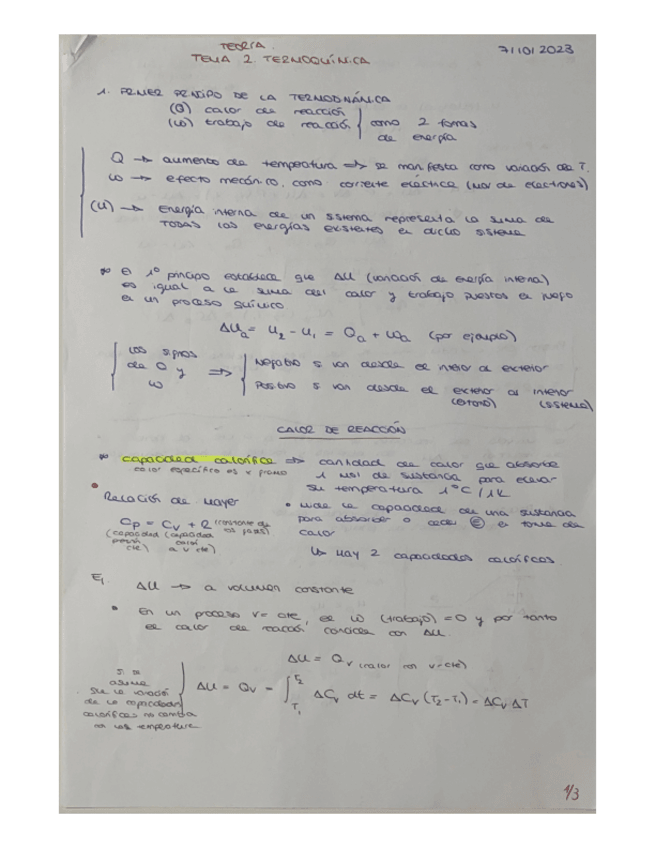 TEORÍA
7/10/2023
TEMA 2. TERMOQUÍMICA
1. PRIMER PRINCIPIO DE LA TERMODINÁMICA
(Q) calor de reacción
(W) trabajo de reacción
como 2 formas de energía
Q → aumento de temperatura ⇒ se manifiesta como variación de T.
W → efecto mecánico, como corriente eléctrica (mov de electrones)
(U) → energía interna de un sistema representa la suma de
TODAS las energías existentes en dicho sistema
* El 1º principio establece que ΔU (variación de energía interna)
es igual a la suma del calor y trabajo puestos en juego
en un proceso químico
ΔUa = U2 - U1 = Qa + Wa (por ejemplo)
Los signos
de Q y
W
⇒ Negativo si van desde el interior al exterior
Positivo si van desde el exterior al interior
(entorno) (sistema)
CALOR DE REACCIÓN
* capacidad calorífica ⇒ cantidad de calor que absorbe
calor específico es x gramo
1 mol de sustancia para elevar
su temperatura 1ºC / 1K
• Relación de Mayer
Cp = Cv + R (constante de los gases)
(capacidad presión cte) (capacidad calor a v cte)
• Mide la capacidad de una sustancia
para absorber o ceder E en forma de
calor
↳ Hay 2 capacidades caloríficas
ΔU → a volumen constante
• En un proceso V = cte, el W (trabajo) = 0 y por tanto
el calor de reacción coincide con ΔU.
ΔU = Qv (calor con v=cte)
Si se
asume
que la variación
de la capacidades
caloríficas no cambia
con las temperatura
ΔU = Qv = ∫T1 T2 ΔCv dt = ΔCv (T2 - T1) = ΔCv ΔT
1/3